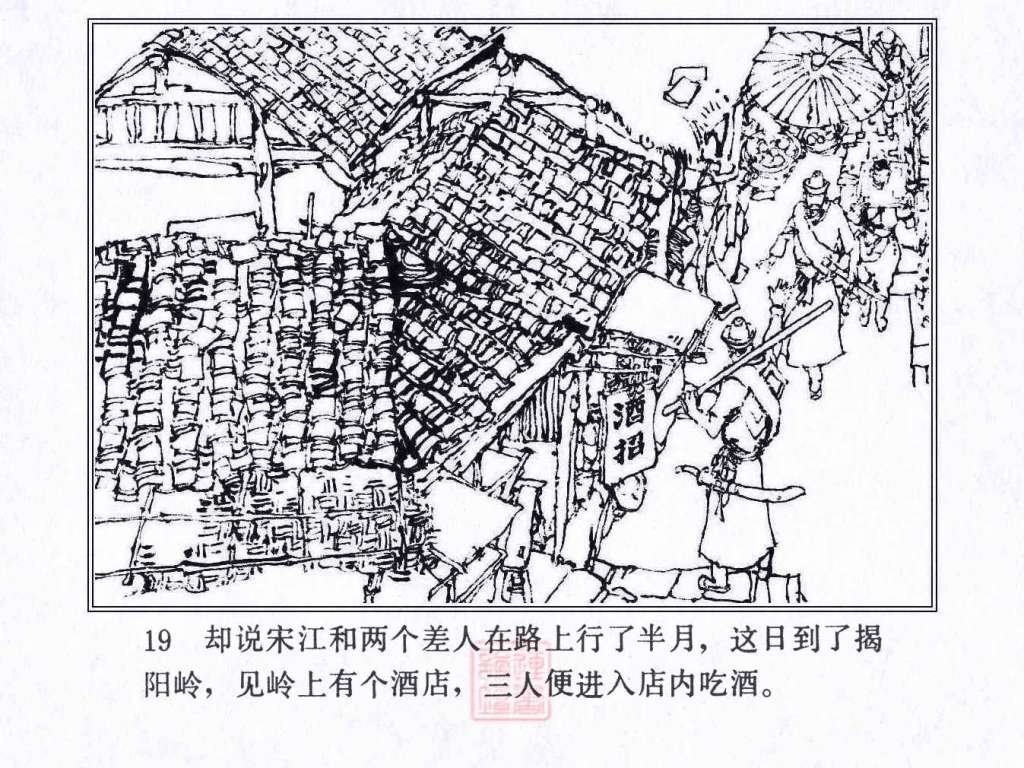 酒招
19 却说宋江和两个差人在路上行了半月，这日到了揭
阳岭，见岭上有个酒店，三人便进入店内吃酒。